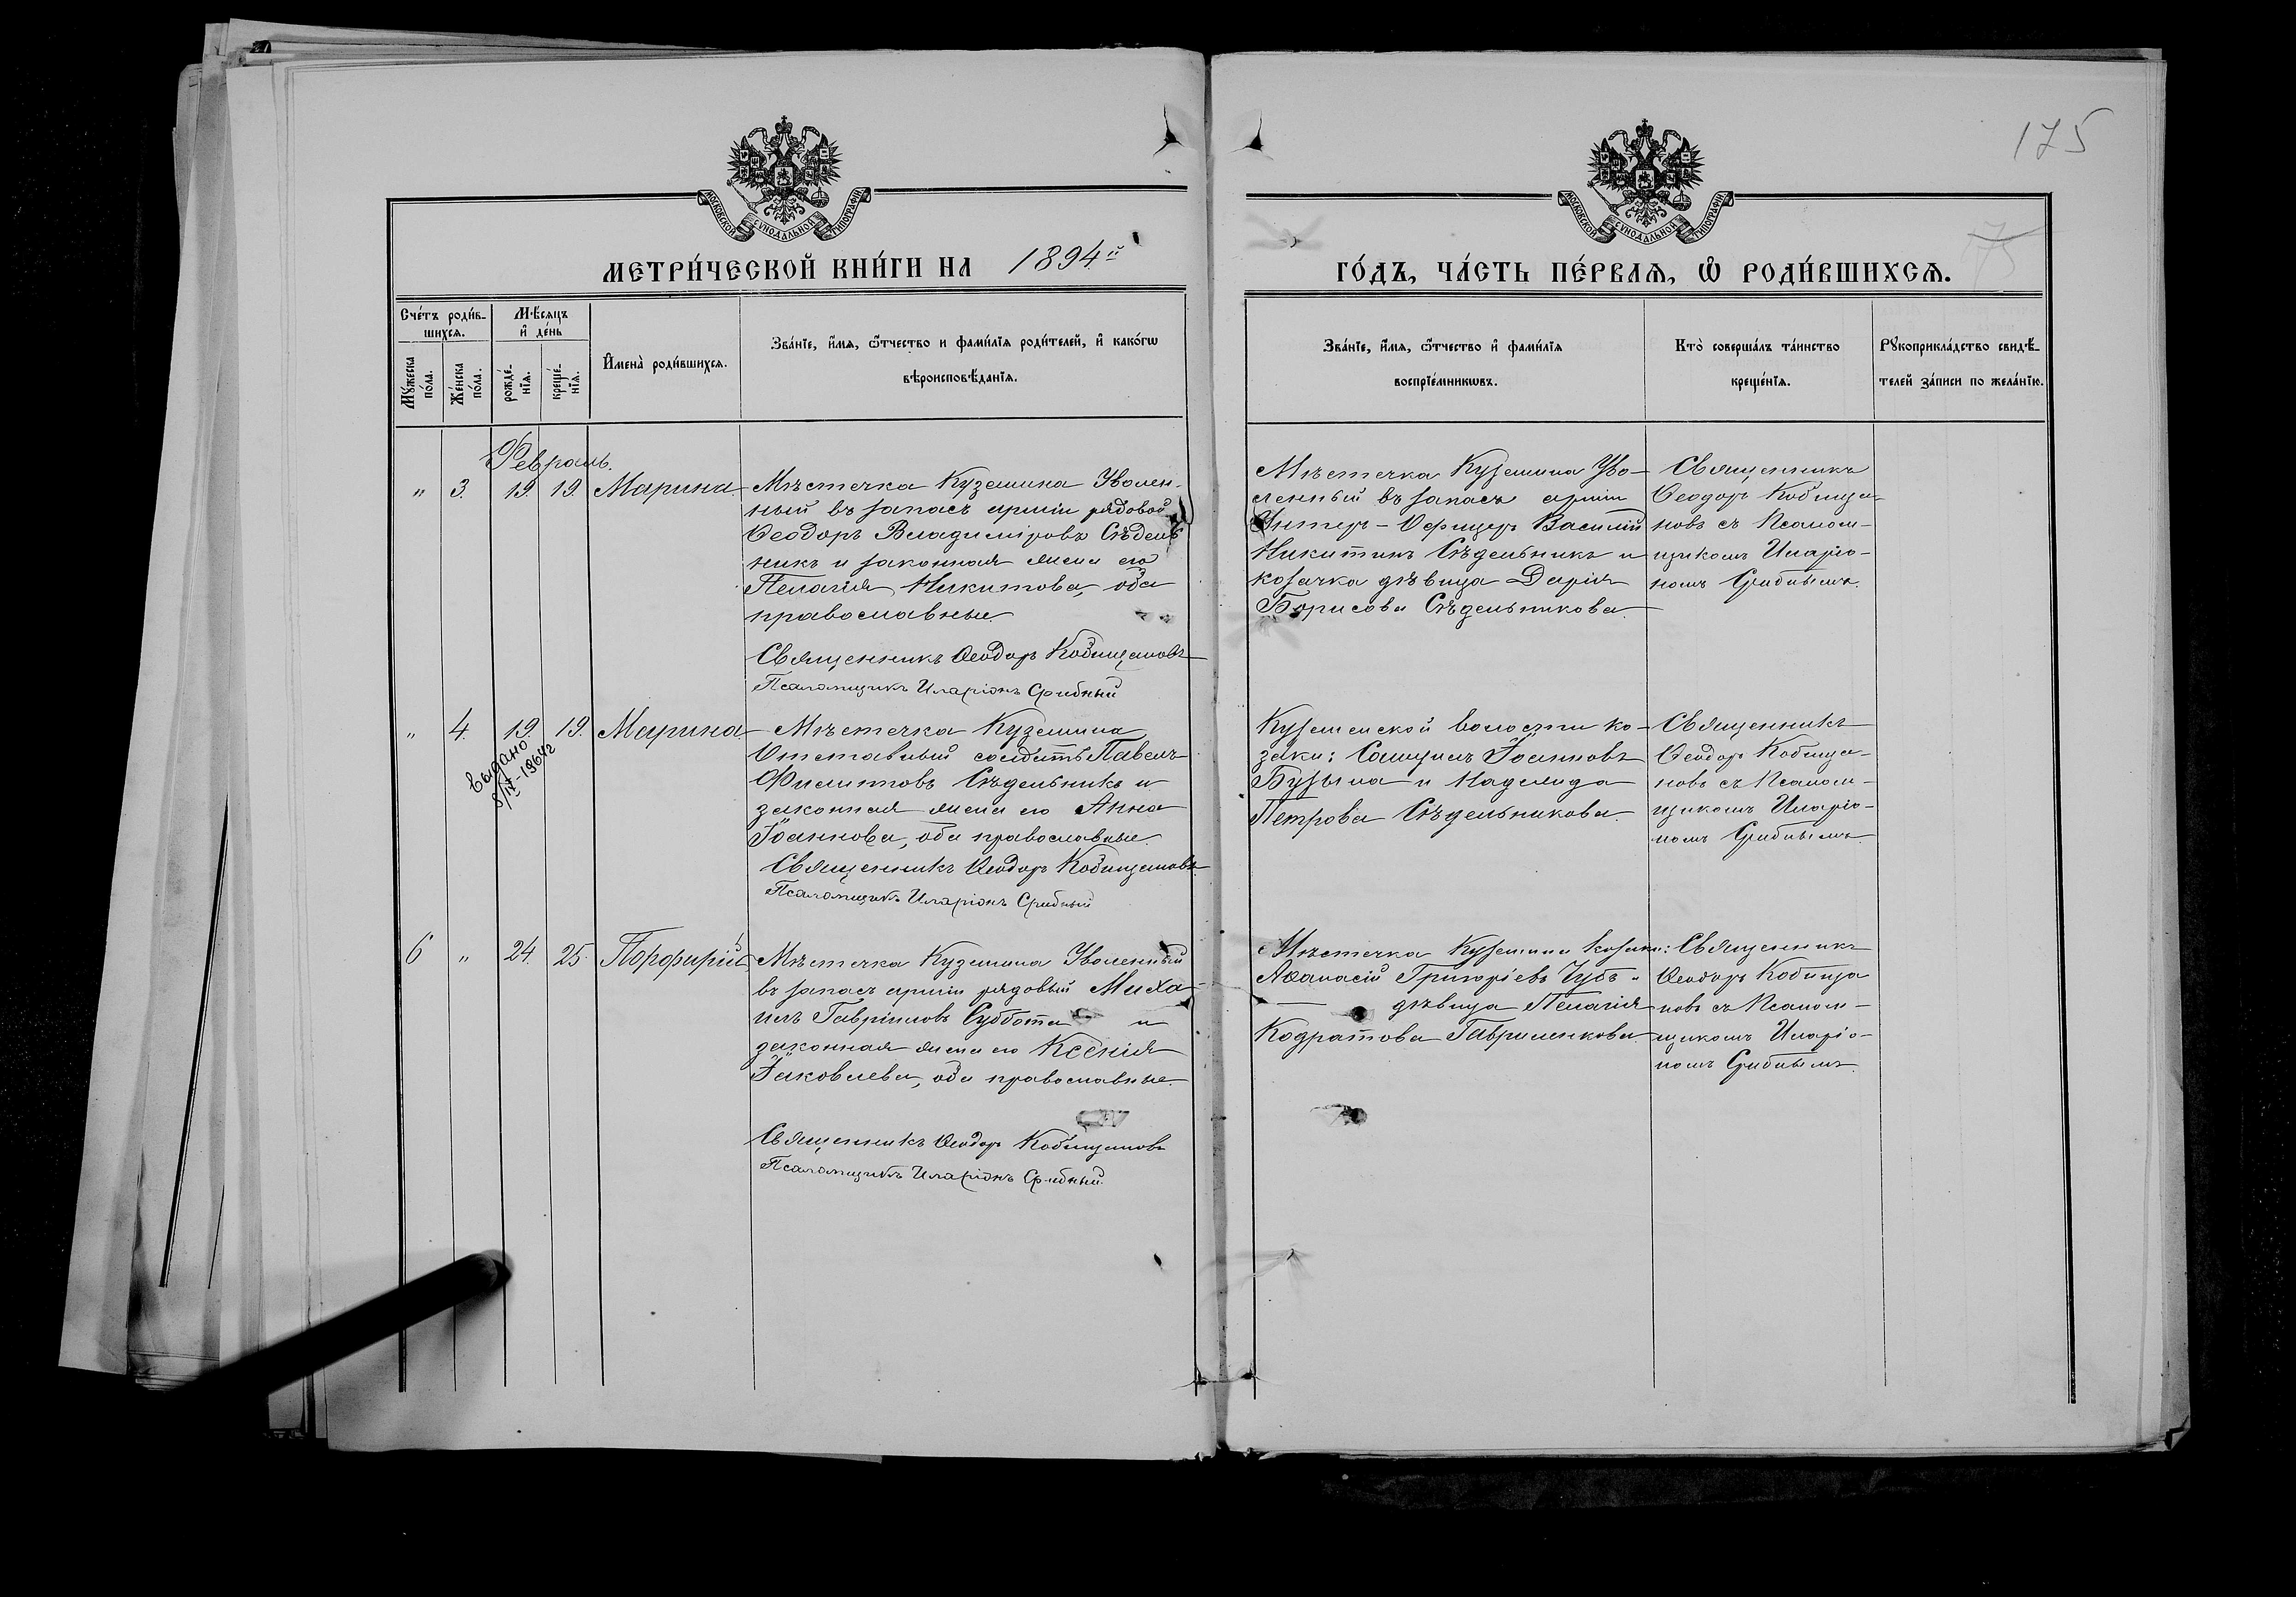 175
МОСКОВСКОЙ СѴНОДАЛЬНОЙ ТИПОГРАФІИ
МОСКОВСКОЙ СѴНОДАЛЬНОЙ ТИПОГРАФІИ
МЕТРИ́ЧЕСКОЙ КНИ́ГИ НА 1894й
ГО́ДЪ, ЧА́СТЬ ПЕ́РВАѦ, Ѿ РОДИ́ВШИХСѦ.
Сче́тъ роди́в-
шихсѧ.
Мꙋ́жеска
по́ла.
Же́нска
по́ла.
Мѣ́сѧцъ
и҆ де́нь
рожде́-
нїѧ.
креще́-
нїѧ.
И҆мена̀ роди́вшихсѧ.
Зва́нїе, и҆́мѧ, ѻ҆́тчество и фами́лїѧ роди́телей, и҆ како́гѡ
вѣроисповѣ́данїѧ.
Зва́нїе, и҆́мѧ, ѻ҆́тчество и҆ фами́лїѧ
воспрїе́мникѡвъ.
Кто̀ соверша́лъ та́инство
креще́нїѧ.
Рꙋкоприкла́дство свидѣ́-
телей за́писи по жела́нїю.
Февраль.
" 3. 19. 19. Марина
Мѣстечка Куземина Уволен-
ный въ запасъ арміи рядовой
Ѳеодоръ Владиміровъ Сѣдель
никъ и законная жена его
Пелагія Никитова, оба
православные.
Священникъ Ѳеодоръ Кобищановъ
Псаломщикъ Иларіонъ Срибный
Мѣстечка Куземина Уво-
ленный въ запасъ арміи
Унтеръ-Офицеръ Василій
Никитинъ Сѣдельникъ и
козачка дѣвица Дарія
Борисова Сѣдельникова.
Священникъ
Ѳеодоръ Кобища-
новъ съ Псалом-
щикомъ Иларіо-
номъ Срибнымъ.
" 4. 19. 19. Марина
выдано
8/IV-1964 г
Мѣстечка Куземина
Отставный солдатъ Павелъ
Филипповъ Сѣдельникъ и
законная жена его Анна
Іоаннова, оба православные.
Священникъ Ѳеодоръ Кобищановъ
Псаломщикъ Иларіонъ Срибный
Куземенской волости ко-
заки: Сампсонъ Іоанновъ
и Надежда
Петрова Сѣдельникова.
Священникъ
Ѳеодоръ Кобища-
новъ съ Псалом-
щикомъ Иларіо-
номъ Срибнымъ.
6 " 24. 25. Порфирій
Мѣстечка Куземина Уволенный
въ запасъ арміи рядовый Миха-
илъ Гавріиловъ Суббота и
законная жена его Ксенія
Іаковлева, оба православные.
Священникъ Ѳеодоръ Кобищановъ
Псаломщикъ Иларіонъ Срибный.
Мѣстечка Куземина козаки:
Аѳанасій Григоріевъ Чубъ и
дѣвица Пелагія
Кодратова Гавриленкова
Священникъ
Ѳеодоръ Кобища
новъ съ Псалом-
щикомъ Иларіо-
номъ Срибнымъ.